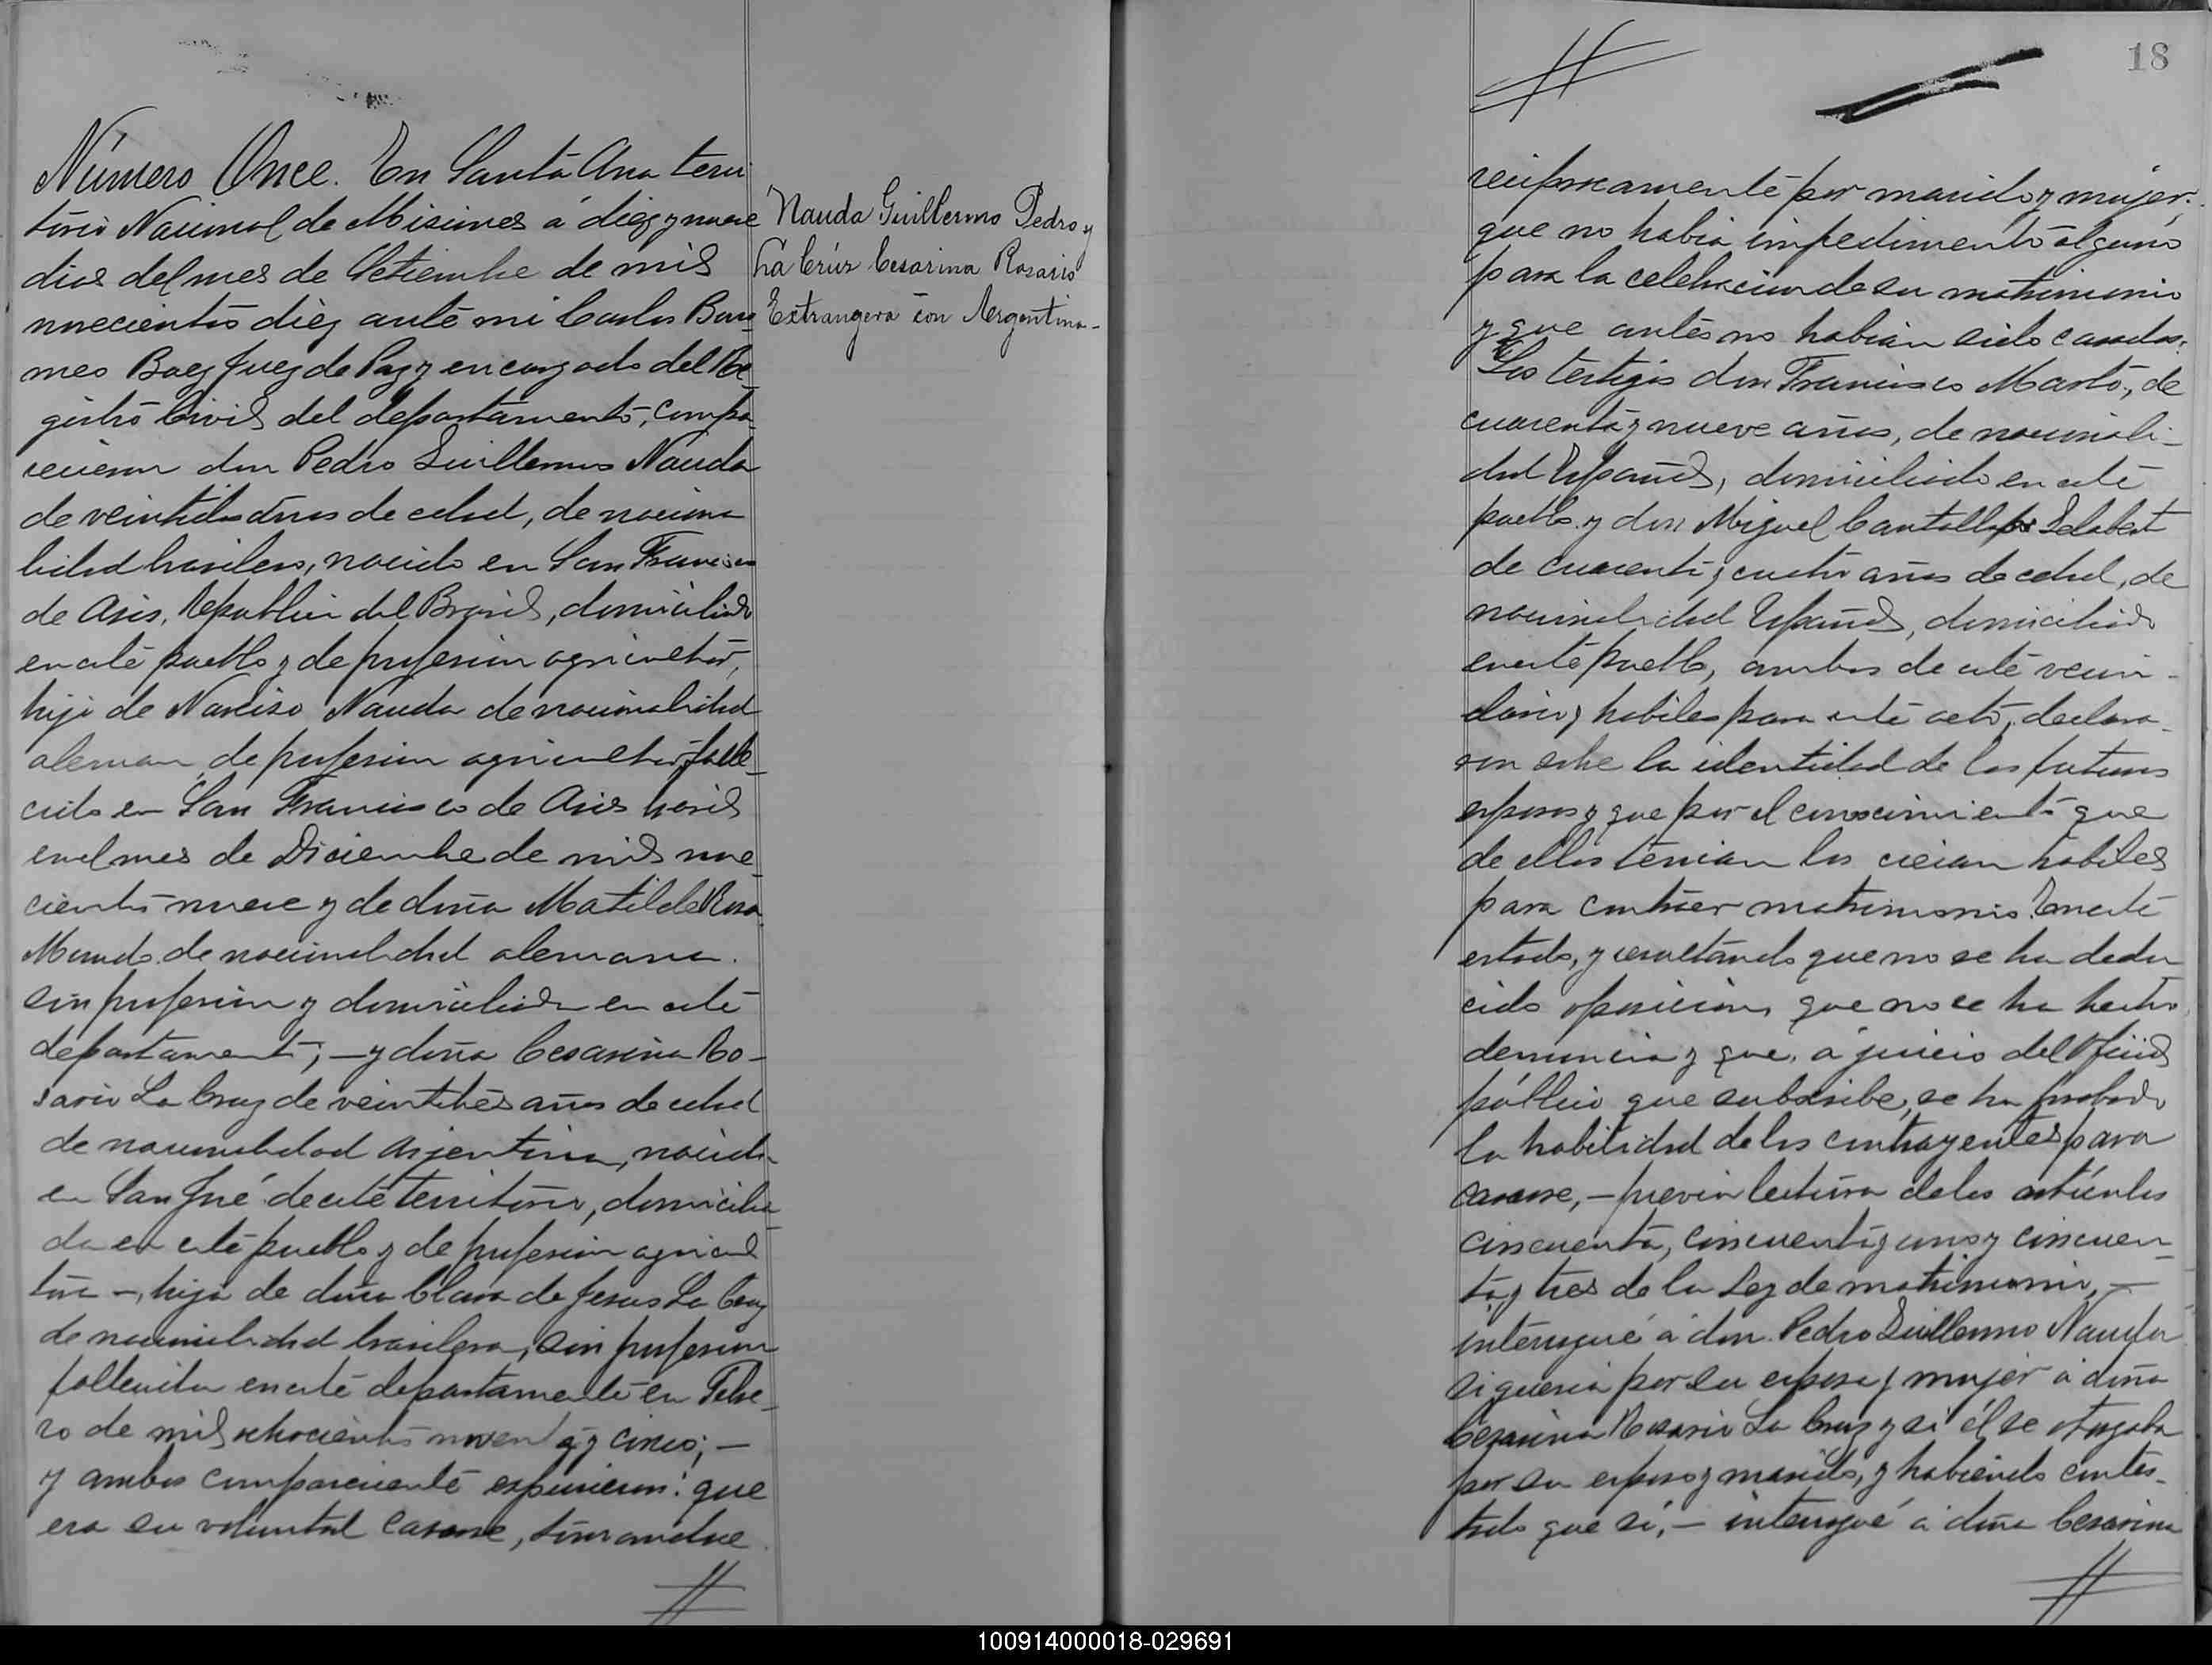 Número Once. En Santa Ana terri
torio Nacional de Misiones á diez y nueve
dias del mes de Setiembre de mil
novecientos diez ante mi Carlos
Baez Juez de Paz y encargado del Re
gistro Civil del departamento, compa
recieron don Pedro Guillermo Nauda
de veintidos años de edad, de naciona
lidad brasilera, nacido en San Francisco
de Asis, República del Brasil, domiciliado
en este pueblo y de profesion agricultor,
hijo de Narciso Nauda de nacionalidad
aleman, de profesion agricultor, falle
cido en San Francisco de Asis brasil
en el mes de Diciembre de mil nove
cientos nueve y de doña Matilde
de nacionalidad alemana.
sin profesion y domiciliada en este
departamento; — y doña Cesarina Ro-
sario La Cruz de veintitres años de edad
de nacionalidad arjentina, nacida
en San José de este territorio, domicilia
da en este pueblo y de profesion agricul
tora —, hija de doña Clara de Jesus La Cruz
de nacionalidad brasilera, sin profesion
fallecida en este departamento en Febre
ro de mil ochocientos noventa y cinco; —
y ambos compareciente espusieron: que
era su voluntad casarse, tomandose
Nauda Guillermo Pedro y
La Crúz Cesarina Rosario
Extrangera con Argentina-
18
reciprocamente por marido y mujer:
que no habia impedimento alguno
para la celebracion de su matrimonio
y que antes no habian sido casados.
Los testigos don Francisco Marto, de
cuarenta y nueve años, de nacionali-
dad Español, domiciliado en este
pueblo y don Miguel
de cuarenta y cuatro años de edad, de
nacionalidad Español, domiciliado
en este pueblo, ambos de este vecin-
dario y habiles para este acto, declara
ron sobre la identidad de los futuros
esposos y que por el conocimiento que
de ellos tenian los creian habiles
para contraer matrimonio. En este
estado, y resultando que no se ha dedu
cido oposicion, que no se ha hecho
denuncia y que, á juicio del Oficial
público que subscribe, se ha probado
la habilidad de los contrayentes para
casarse, — previa lectura de los artículos
cincuenta, cincuenta y uno y cincuen
ta y tres de la Ley de matrimonio, —
interrogué á don Pedro Guillermo Nauda
si queria por su esposa y mujer á doña
Cesarina Rosario La Cruz y si él se otorgaba
por su esposo y marido, y habiendo contes-
tado que si, — interrogué á doña Cesarina
100914000018-029691